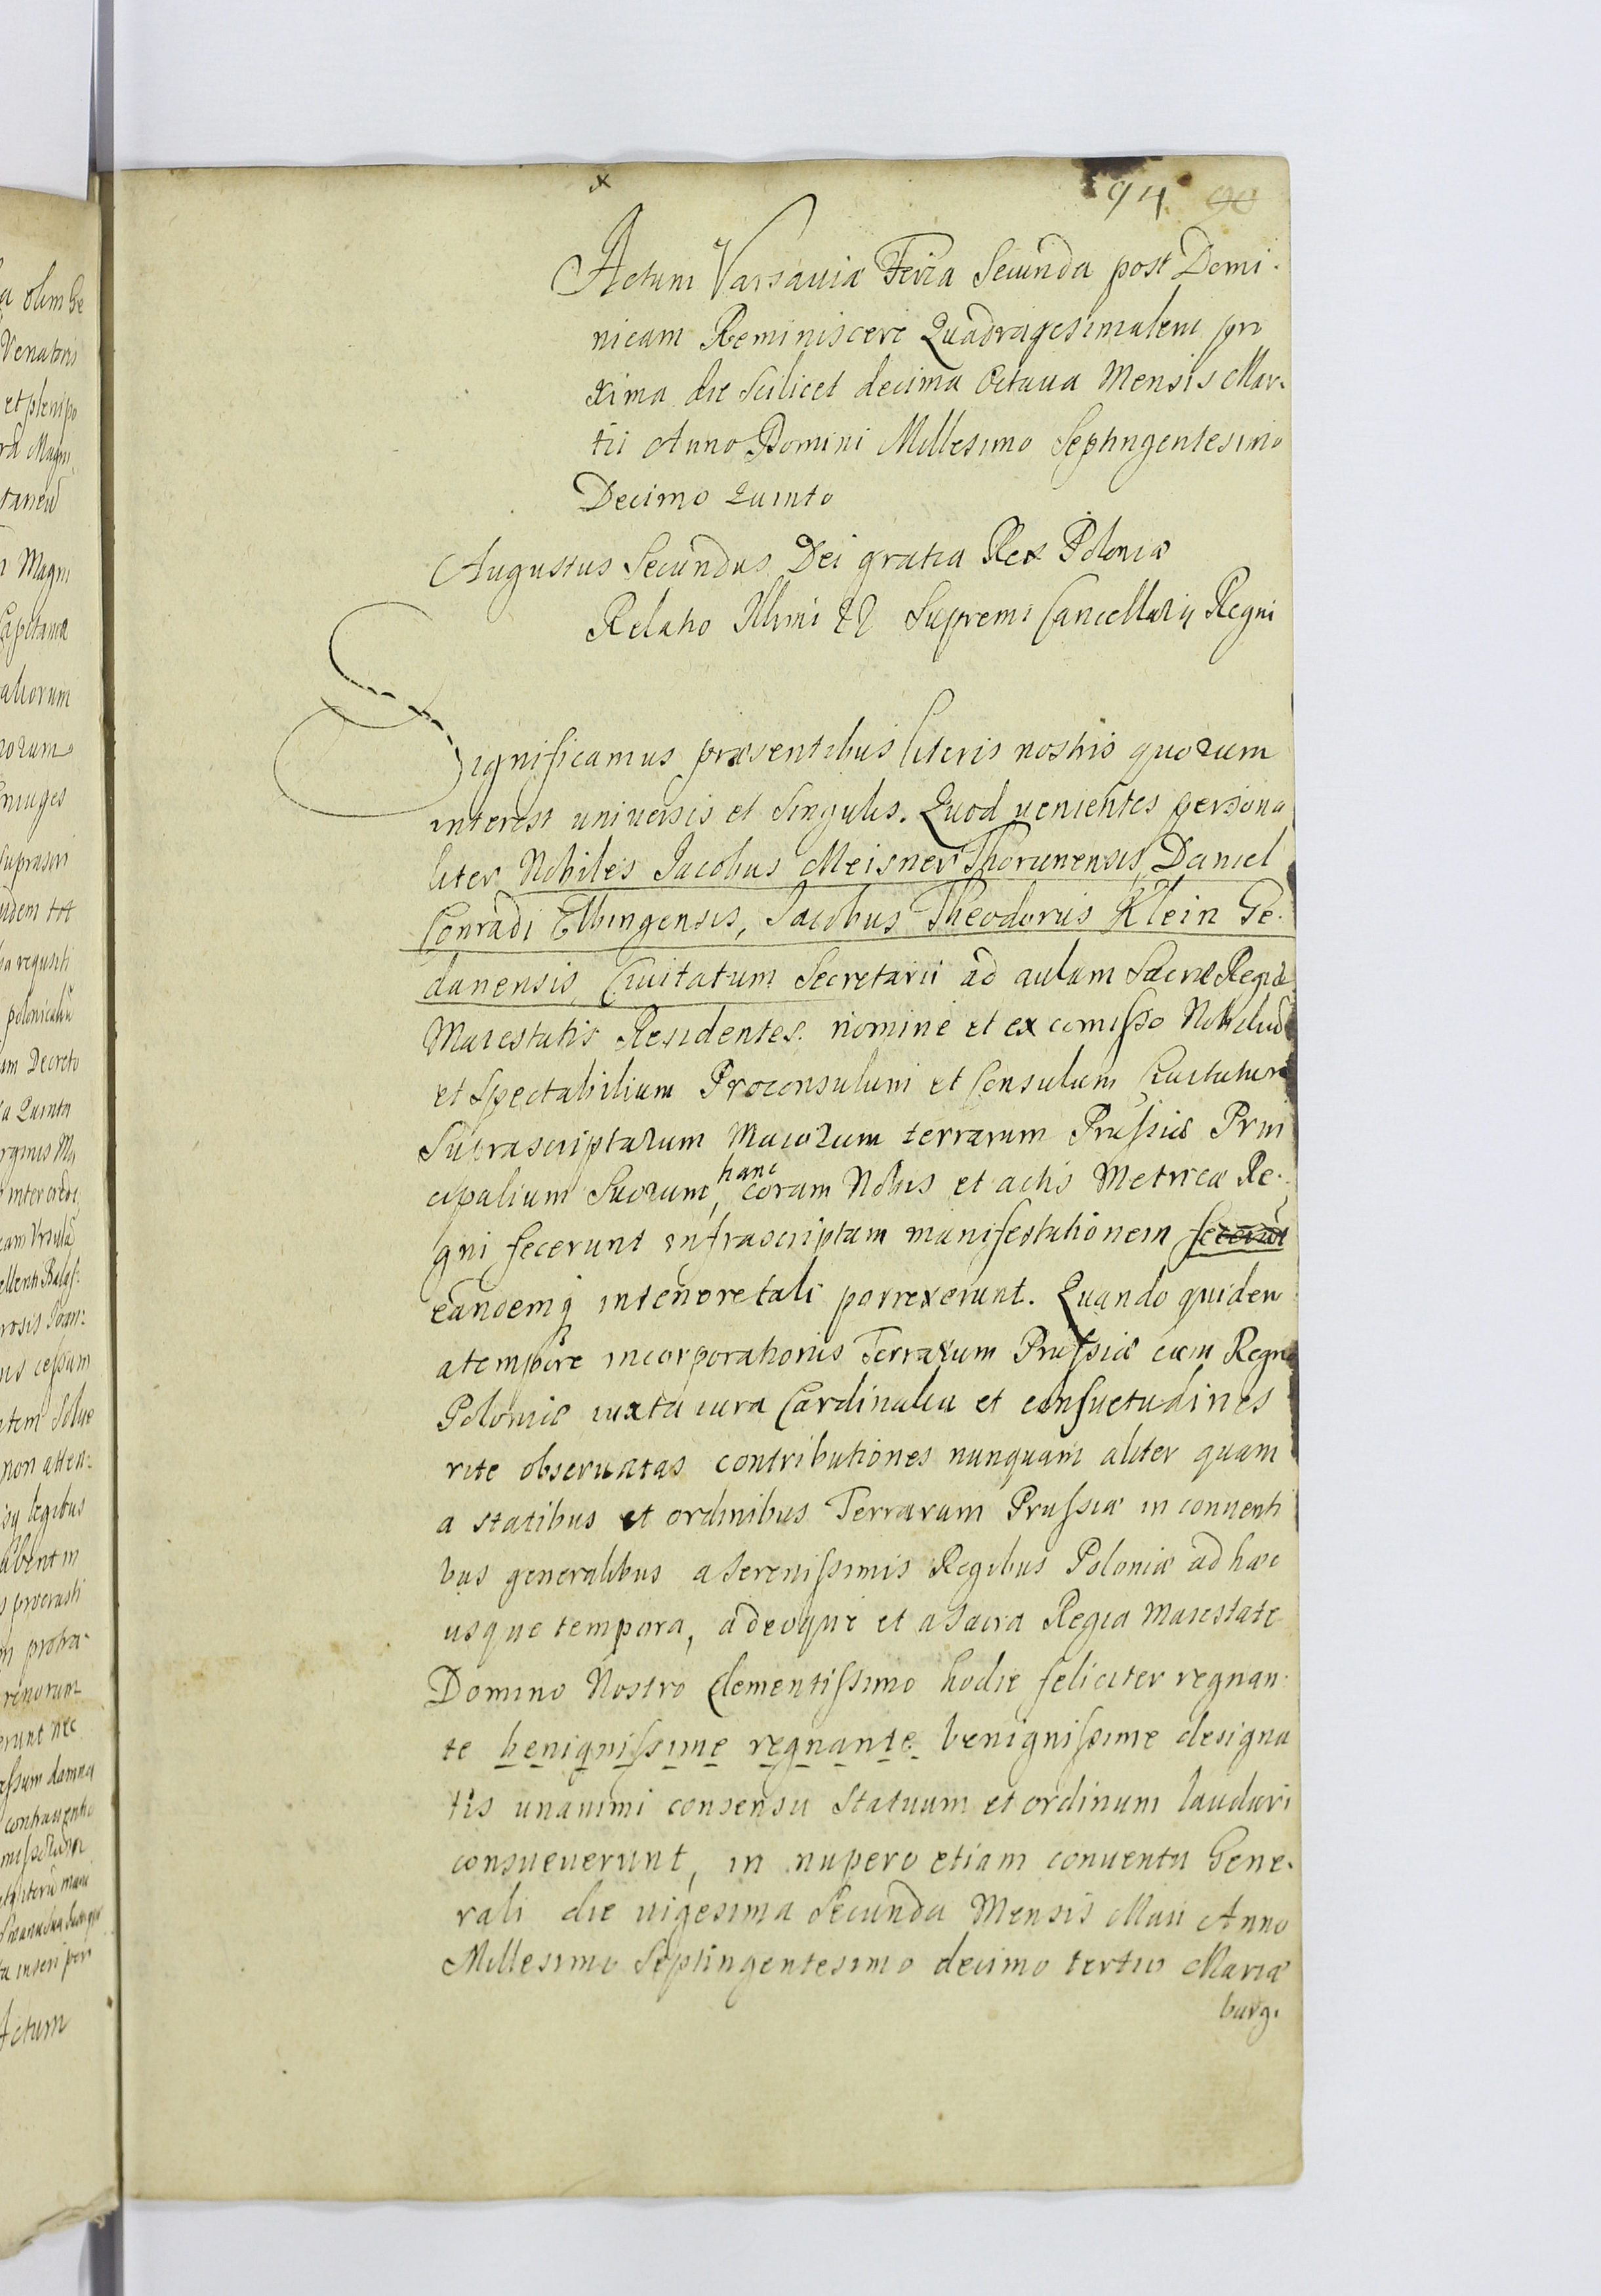 94 90
Actum Varsaviæ Feria Secunda post Domi-
nicam Reminiscere Quadragesimalem pro
xima die Scilicet decima Octaua Mensis Mar-
tii Anno Domini Millesimo Septingentesimo
Decimo Quinto
Augustus Secundus Dei gratia Rex Poloniæ
Relatio Illmi Supremi Cancellarij Regni
Significamus præsentibus literis nostris quorum
interest universis et singulis. Quod uenientes persona
liter Nobiles Jacobus Meisner Thorunensis, Daniel
Conradi Elbingensis, Jacobus Theodorus Klein Ge-
danensis, Ciuitatum Secretarii ad aulam Sacræ Regiæ
Maiestatis Residentes. nomine et ex comisso Nobiliu
et Spectabilium Proconsulum et Consulum Ciuitatum
Suprascriptarum Maiorum terrarum Prussiæ Prin
cipalium Suorum, hanc coram Nobis et actis Metrices Re-
gni fecerunt infrascriptam manifestationem fecerunt
eandemq in tenore tali porrexerunt. Quando quidem
a tempore incorporationis Terrarum Prussiæ cum Regno
Poloniæ iuxta iura Cardinalia et consuetudines
rite obseruatas contributiones nunquam aliter quam
a statibus et ordinibus Terrarum Prussiæ in conuenti
bus generalibus a Serenissimis Regibus Poloniæ ad hæc
usque tempora, adeoque et a Sacra Regia Maiestate
Domino Nostro Clementissimo hodie feliciter regnan-
te benignissime regnante benignissime designa
tis unanimi consensu Statuum et ordinum laudari
consueuerunt, in nupero etiam conuentu Gene-
rali die uigesima Secunda Mensis Maii Anno
Millesimo Septingentesimo decimo tertio Mariæ
burg.